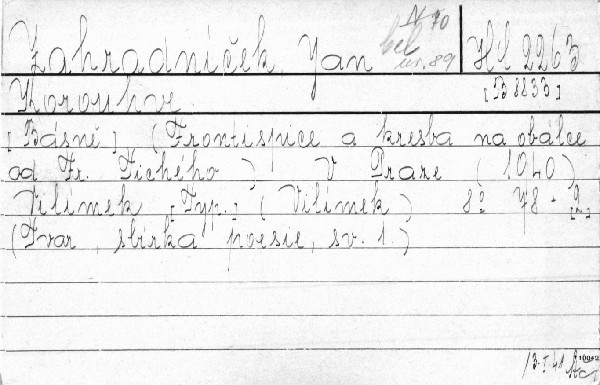 N 70
Zahradníček, Jan bel. Hl 2263
ur. 89
Korouhve. [B 8833]
[Básně] (Frontispice a kresba na obálce
od Fr. Tichého) V Praze (1940)
Vilímek [Typ.] (Vilímek) 8° 78-[2]
(Tvar, sbírka poesie, sv. 1.)
13.I.41